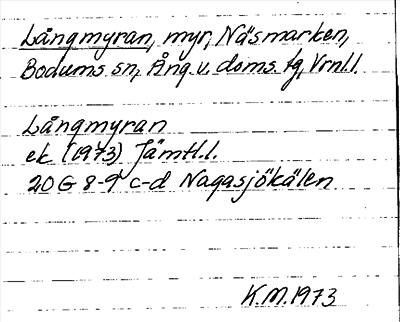 Långmyran, myr, Näsmarken,
Bodums sn, Ång. v. doms. tg, Vrnl.l.
Långmyran
ek (1973) Jämtl.l.
20 G 8-9 c-d Nagasjökälen
K.M. 1973